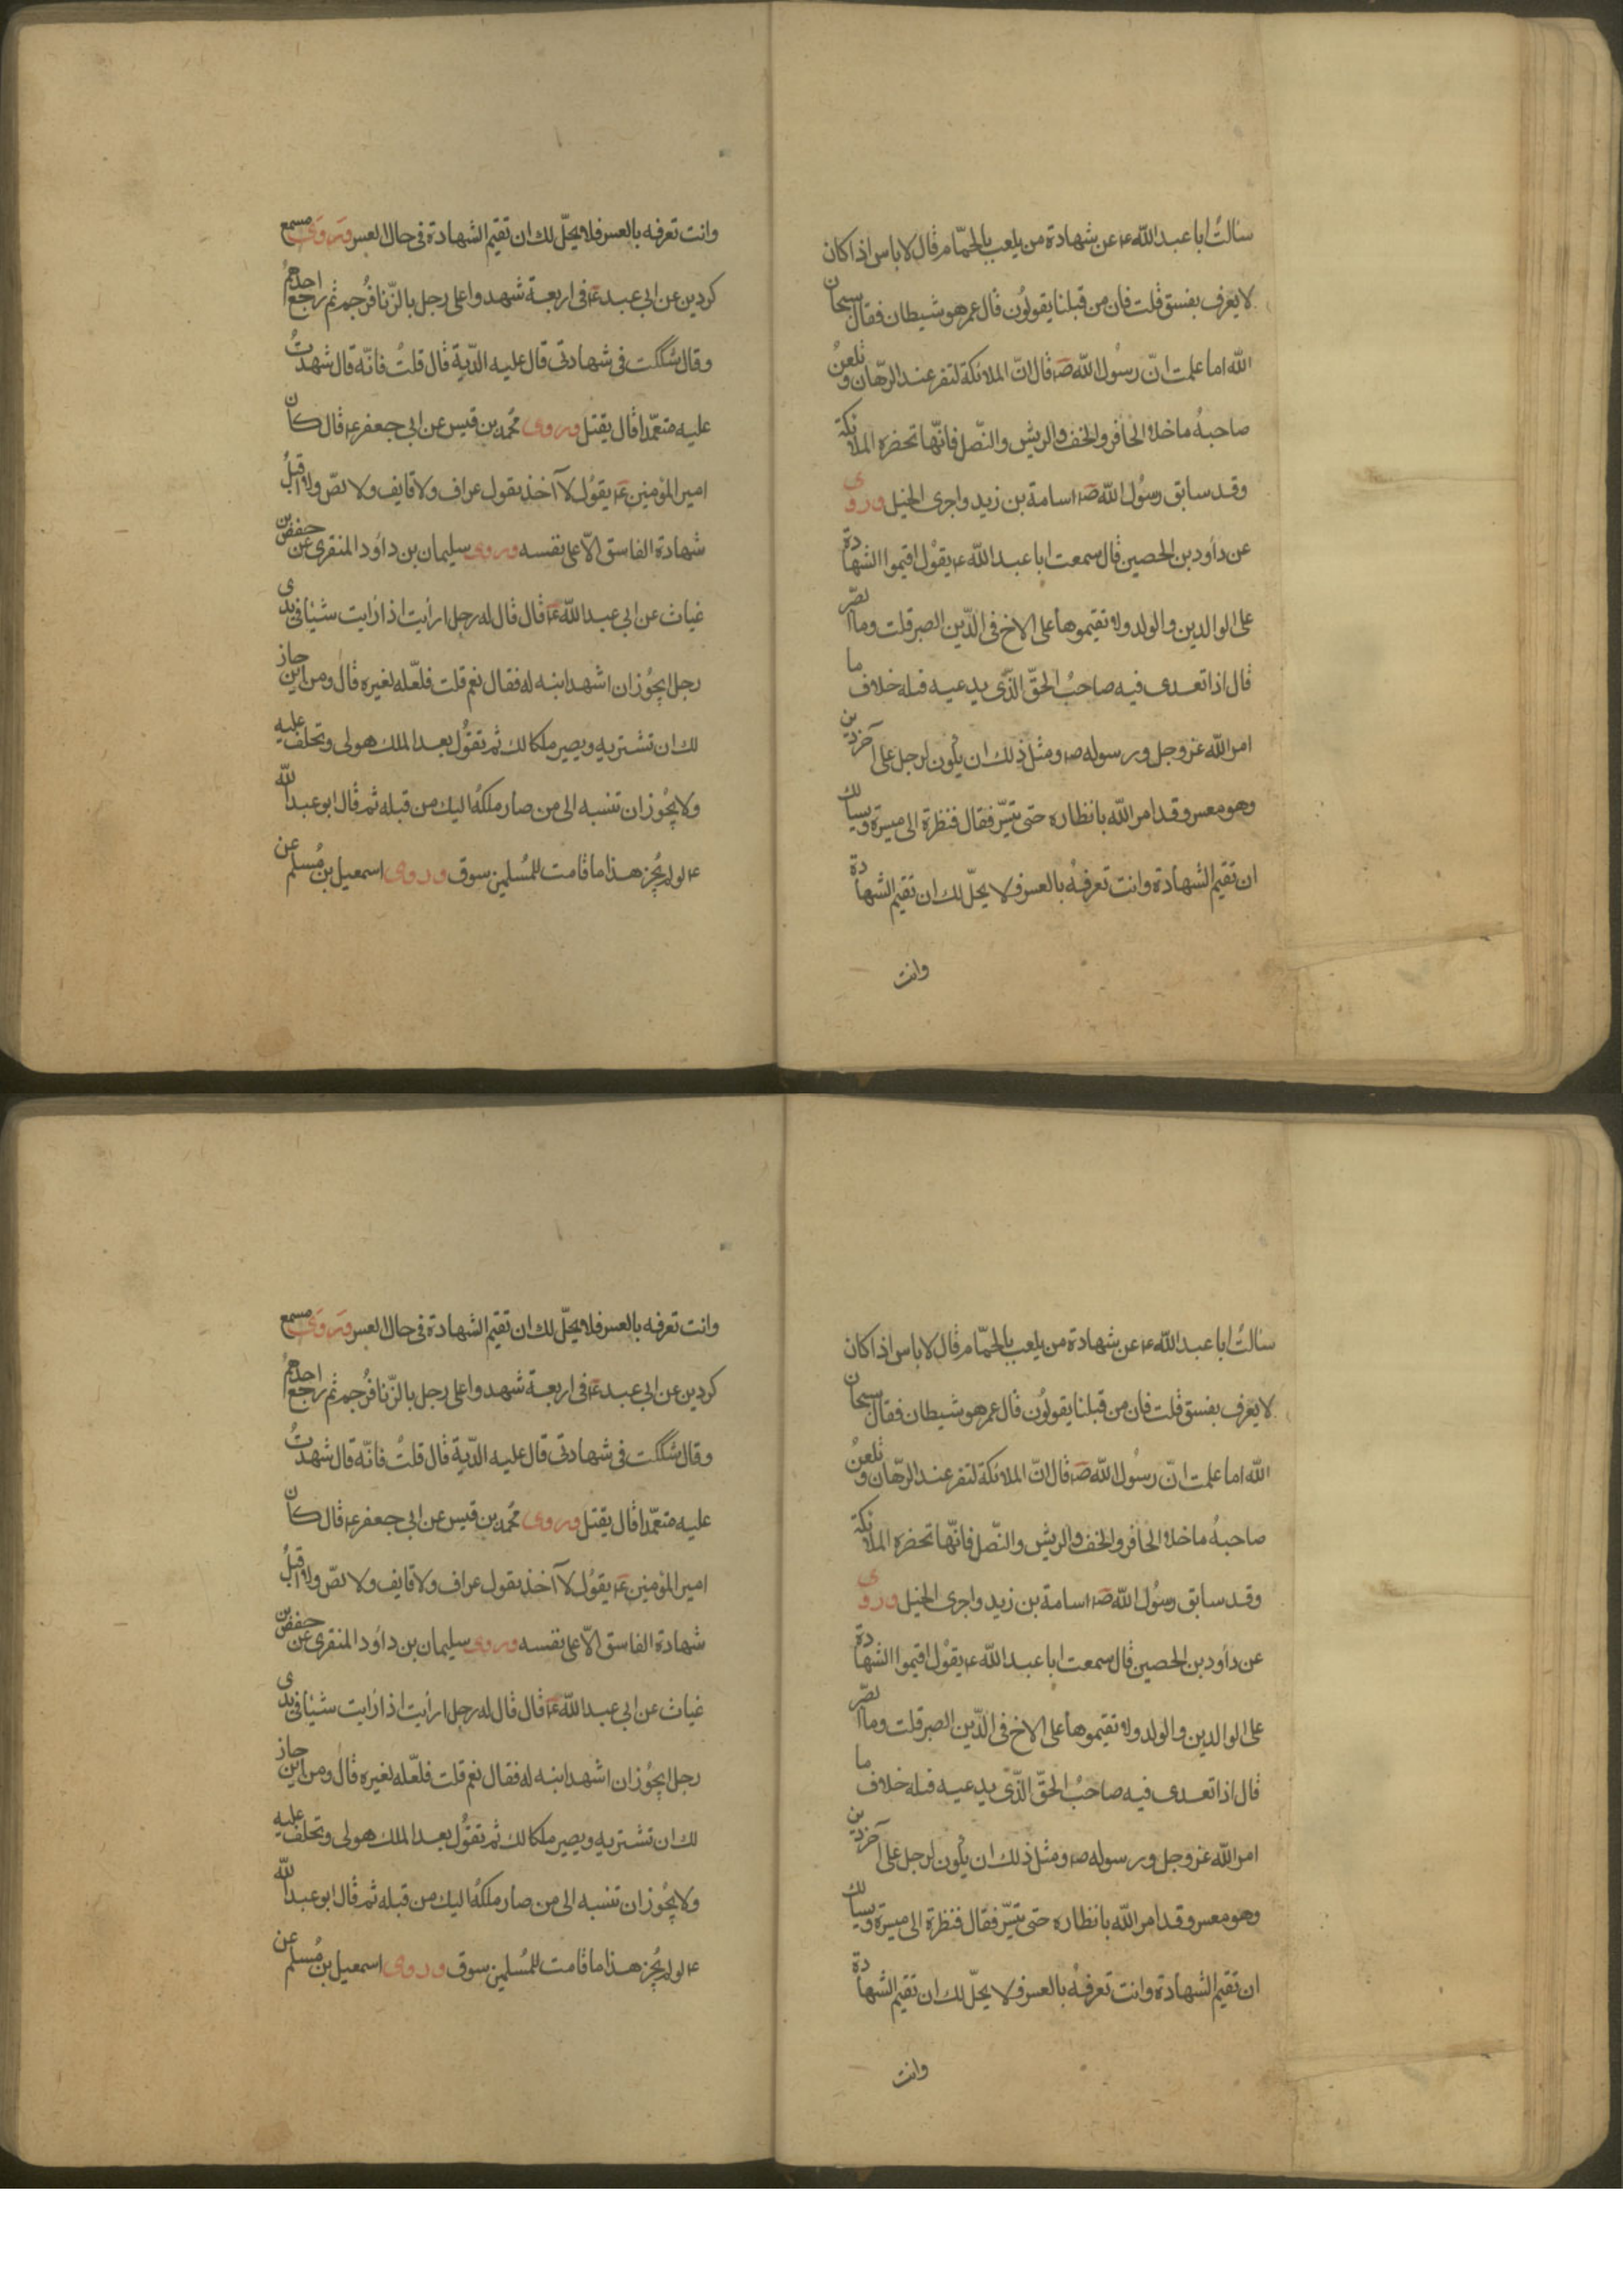 سالتُ ابا عبد الله ع عن شهادة من يلعب بالحمّام قال لا باس اذا كان
لا يعرف بفسق قلت فان من قبلنا يقولون قال عمر هو شيطان فقال سبحان
الله اما علمت انّ رسول الله صَ قال انّ الملائكة لتنفر عند الرهان وتلعنُ
صاحبهُ ما خلا الحافر والخف والريش والنصل فانّها تحضره الملائكة
وقد سابق رسُول الله صَ اسامة بن زيد واجرى الخيل وروى
عن داود بن الحصين قال سمعت ابا عبد الله ع يقول اقيموا الشهادة
على الوالدين والولد ولا تقيموها على الاخ في الدّين الصبر قلت وما الصّر
قال اذا تعدى فيه صاحبُ الحقّ الّذى يدعيه قبله خلاف ما
امر الله عز وجل ورسوله ص ومثل ذلك ان يكون لرجل على آخر دين
وهو معسر وقد امر الله بانظاره حتى تيسّر فقال فنظرة الى ميسرة ويسالك
ان تقيم الشهادة وانت تعرفهُ بالعسر فلا يحلّ لك ان تقيم الشهادة
وانت
وانت تعرفه بالعسر فلا يحلّ لك ان تقيم الشهادة في حال العسر وروى مسمع
كردين عن ابي عبد عَ في اربعة شهدوا على رجل بالزّنا فرُجم ثم رجع احدهم
وقال شككت في شهادتي قال عليه الدّية قال قلتُ فانّه قال شهدتُ
عليه متعمّدا قال يقتل وروى محُمد بن قيس عن ابي جعفر ع قال كان
امير المؤمنين عَ يقول لا آخذ بقول عراف ولا قايف ولا لصّ ولا اقبلُ
شهادة الفاسق الّا على نفسه وروى سليمان بن داود المنقرى عن حفص بن
غياث عن ابي عبد الله عَ قال قال له رجل ارأيت اذا رايت شيئا في يدى
رجل ايجُوز ان اشهد انه له فقال نعم قلت فلعّله لغيره قال ومن اين جاز
لك ان تشتريه ويصير ملكا لك ثم تقول بعد الملك هو لى وتحلف عليه
ولا يجُوز ان تنسبه الى من صار ملكهُ اليك من قبله ثم قال ابو عبد الله
ع لو لم يجُز هذا ما قامت للمُسلمين سوق وروى اسمعيل بن مُسلم عن
سالتُ ابا عبد الله ع عن شهادة من يلعب بالحمّام قال لا باس اذا كان
لا يعرف بفسق قلت فان من قبلنا يقولون قال عمر هو شيطان فقال سبحان
الله اما علمت انّ رسول الله صَ قال انّ الملائكة لتنفر عند الرهان وتلعنُ
صاحبهُ ما خلا الحافر والخف والريش والنصل فانّها تحضره الملائكة
وقد سابق رسُول الله صَ اسامة بن زيد واجرى الخيل وروى
عن داود بن الحصين قال سمعت ابا عبد الله ع يقول اقيموا الشهادة
على الوالدين والولد ولا تقيموها على الاخ في الدّين الصبر قلت وما الصّر
قال اذا تعدى فيه صاحبُ الحقّ الّذى يدعيه قبله خلاف ما
امر الله عز وجل ورسوله ص ومثل ذلك ان يكون لرجل على آخر دين
وهو معسر وقد امر الله بانظاره حتى تيسّر فقال فنظرة الى ميسرة ويسالك
ان تقيم الشهادة وانت تعرفهُ بالعسر فلا يحلّ لك ان تقيم الشهادة
وانت
وانت تعرفه بالعسر فلا يحلّ لك ان تقيم الشهادة في حال العسر وروى مسمع
كردين عن ابي عبد عَ في اربعة شهدوا على رجل بالزّنا فرُجم ثم رجع احدهم
وقال شككت في شهادتي قال عليه الدّية قال قلتُ فانّه قال شهدتُ
عليه متعمّدا قال يقتل وروى محُمد بن قيس عن ابي جعفر ع قال كان
امير المؤمنين عَ يقول لا آخذ بقول عراف ولا قايف ولا لصّ ولا اقبلُ
شهادة الفاسق الّا على نفسه وروى سليمان بن داود المنقرى عن حفص بن
غياث عن ابي عبد الله عَ قال قال له رجل ارأيت اذا رايت شيئا في يدى
رجل ايجُوز ان اشهد انه له فقال نعم قلت فلعّله لغيره قال ومن اين جاز
لك ان تشتريه ويصير ملكا لك ثم تقول بعد الملك هو لى وتحلف عليه
ولا يجُوز ان تنسبه الى من صار ملكهُ اليك من قبله ثم قال ابو عبد الله
ع لو لم يجُز هذا ما قامت للمُسلمين سوق وروى اسمعيل بن مُسلم عن